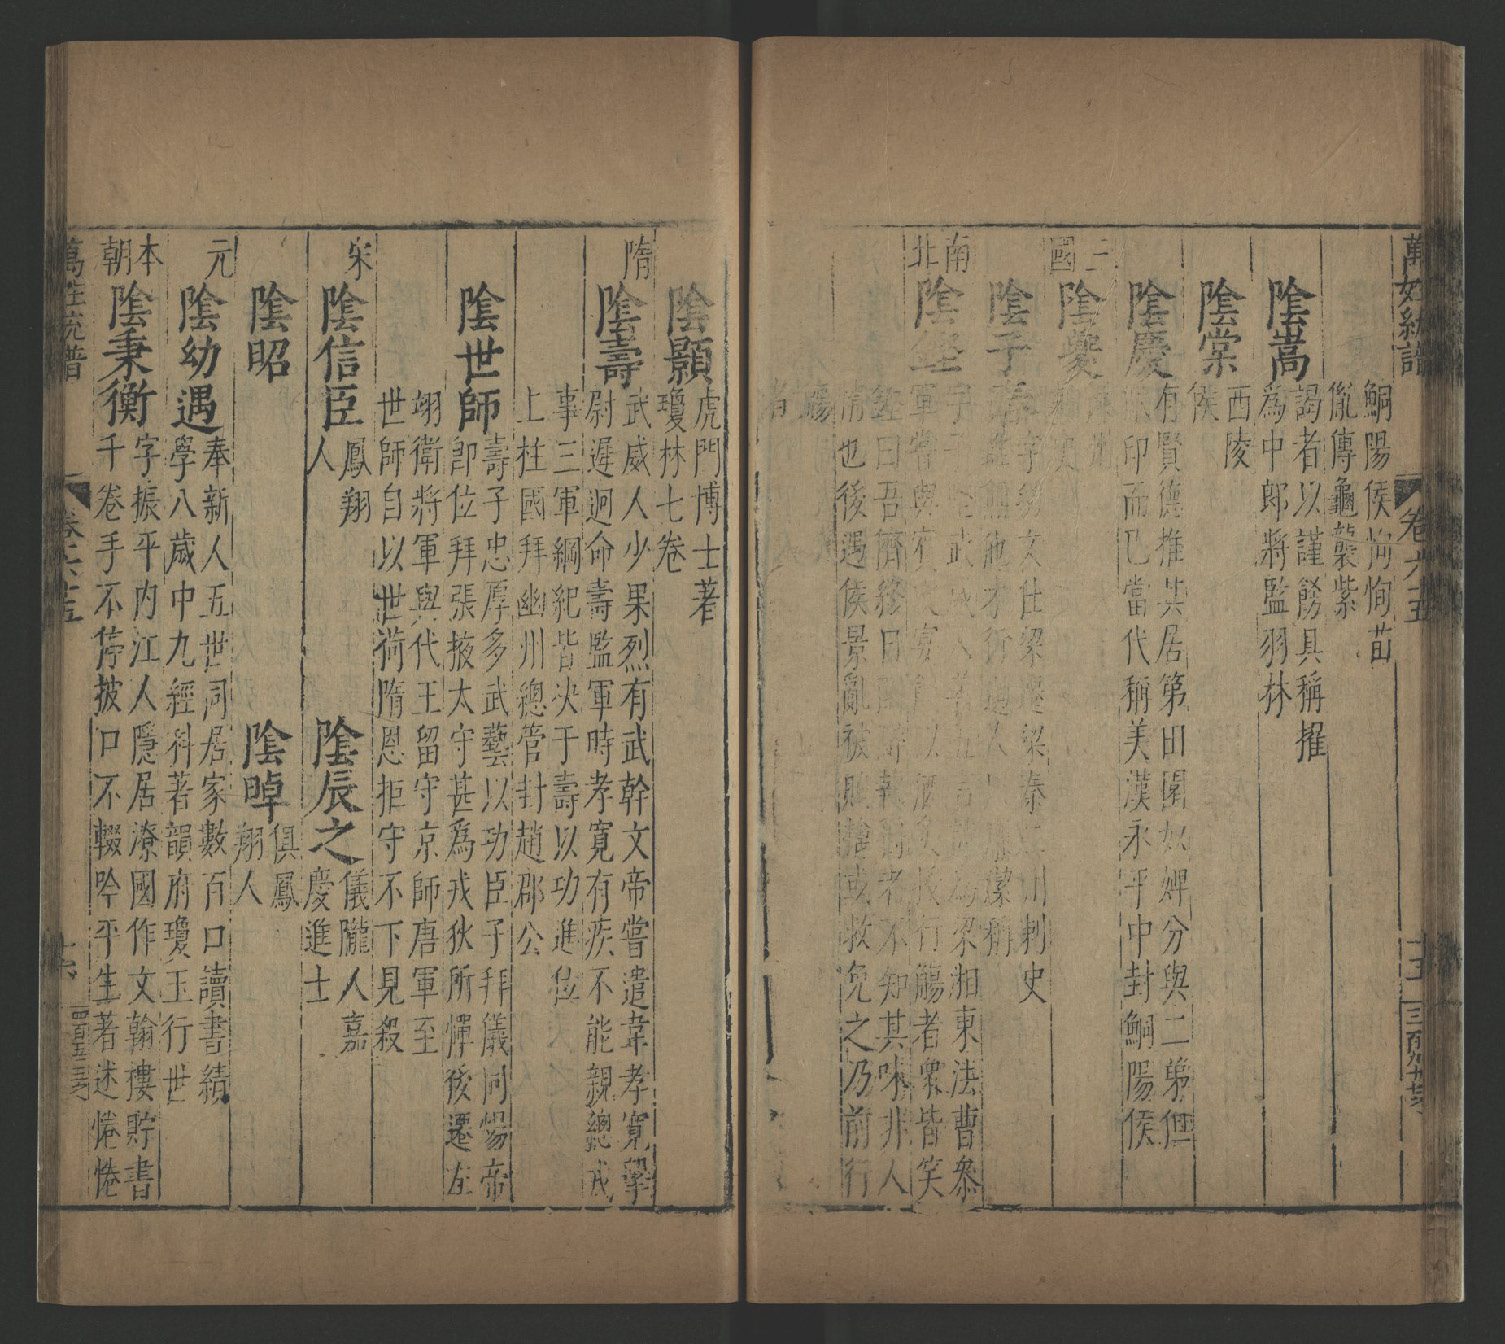 萬姓統譜
卷六十五
十五
鮦陽侯恂恂苗
胤傳龜襲紫
陰嵩
謁者以謹餝具稱擢
為中郎將監羽林
陰棠
西陵
侯
陰慶
有賢德推其居第田園奴婢分與二弟但
印而已當代稱美漢永平中封鮦陽侯
三國
陰夔
陰子
字幼文仕梁歷梁秦二州刺史
南北
陰鏗
字子堅武威人善五言詩為梁湘東法曹參
軍嘗與賓友宴飲以酒炙授行觴者衆皆笑
鏗曰吾儕終日酣酒而執爵者不知其味非人
情也後遇侯景亂被賊擒或救免之乃前行
觴
者
陰顥
虎門博士著
瓊林七卷
隋
陰壽
武威人少果烈有武幹文帝嘗遣韋孝寬擊
尉遲迥命壽監軍時孝寬有疾不能親總戎
事三軍綱紀皆决于壽以功進位
上柱國拜幽州總管封趙郡公
陰世師
壽子忠厚多武藝以功臣子拜儀同煬帝
即位拜張掖太守甚為戎狄所憚後遷左
翊衛將軍與代王留守京師唐軍至
世師自以世荷隋恩拒守不下見殺
宋
陰信臣
鳳翔
人
陰辰之
儀隴人嘉
慶進士
陰昭
陰晫
俱鳳
翔人
元
陰幼遇
奉新人五世同居家數百口讀書績
學八歲中九經科著韻府瓊玉行世
本朝
陰秉衡
字振平内江人隱居潦國作文翰樓貯書
千卷手不停披口不輟吟平生著述惓惓
萬姓統譜
卷六十五
十六